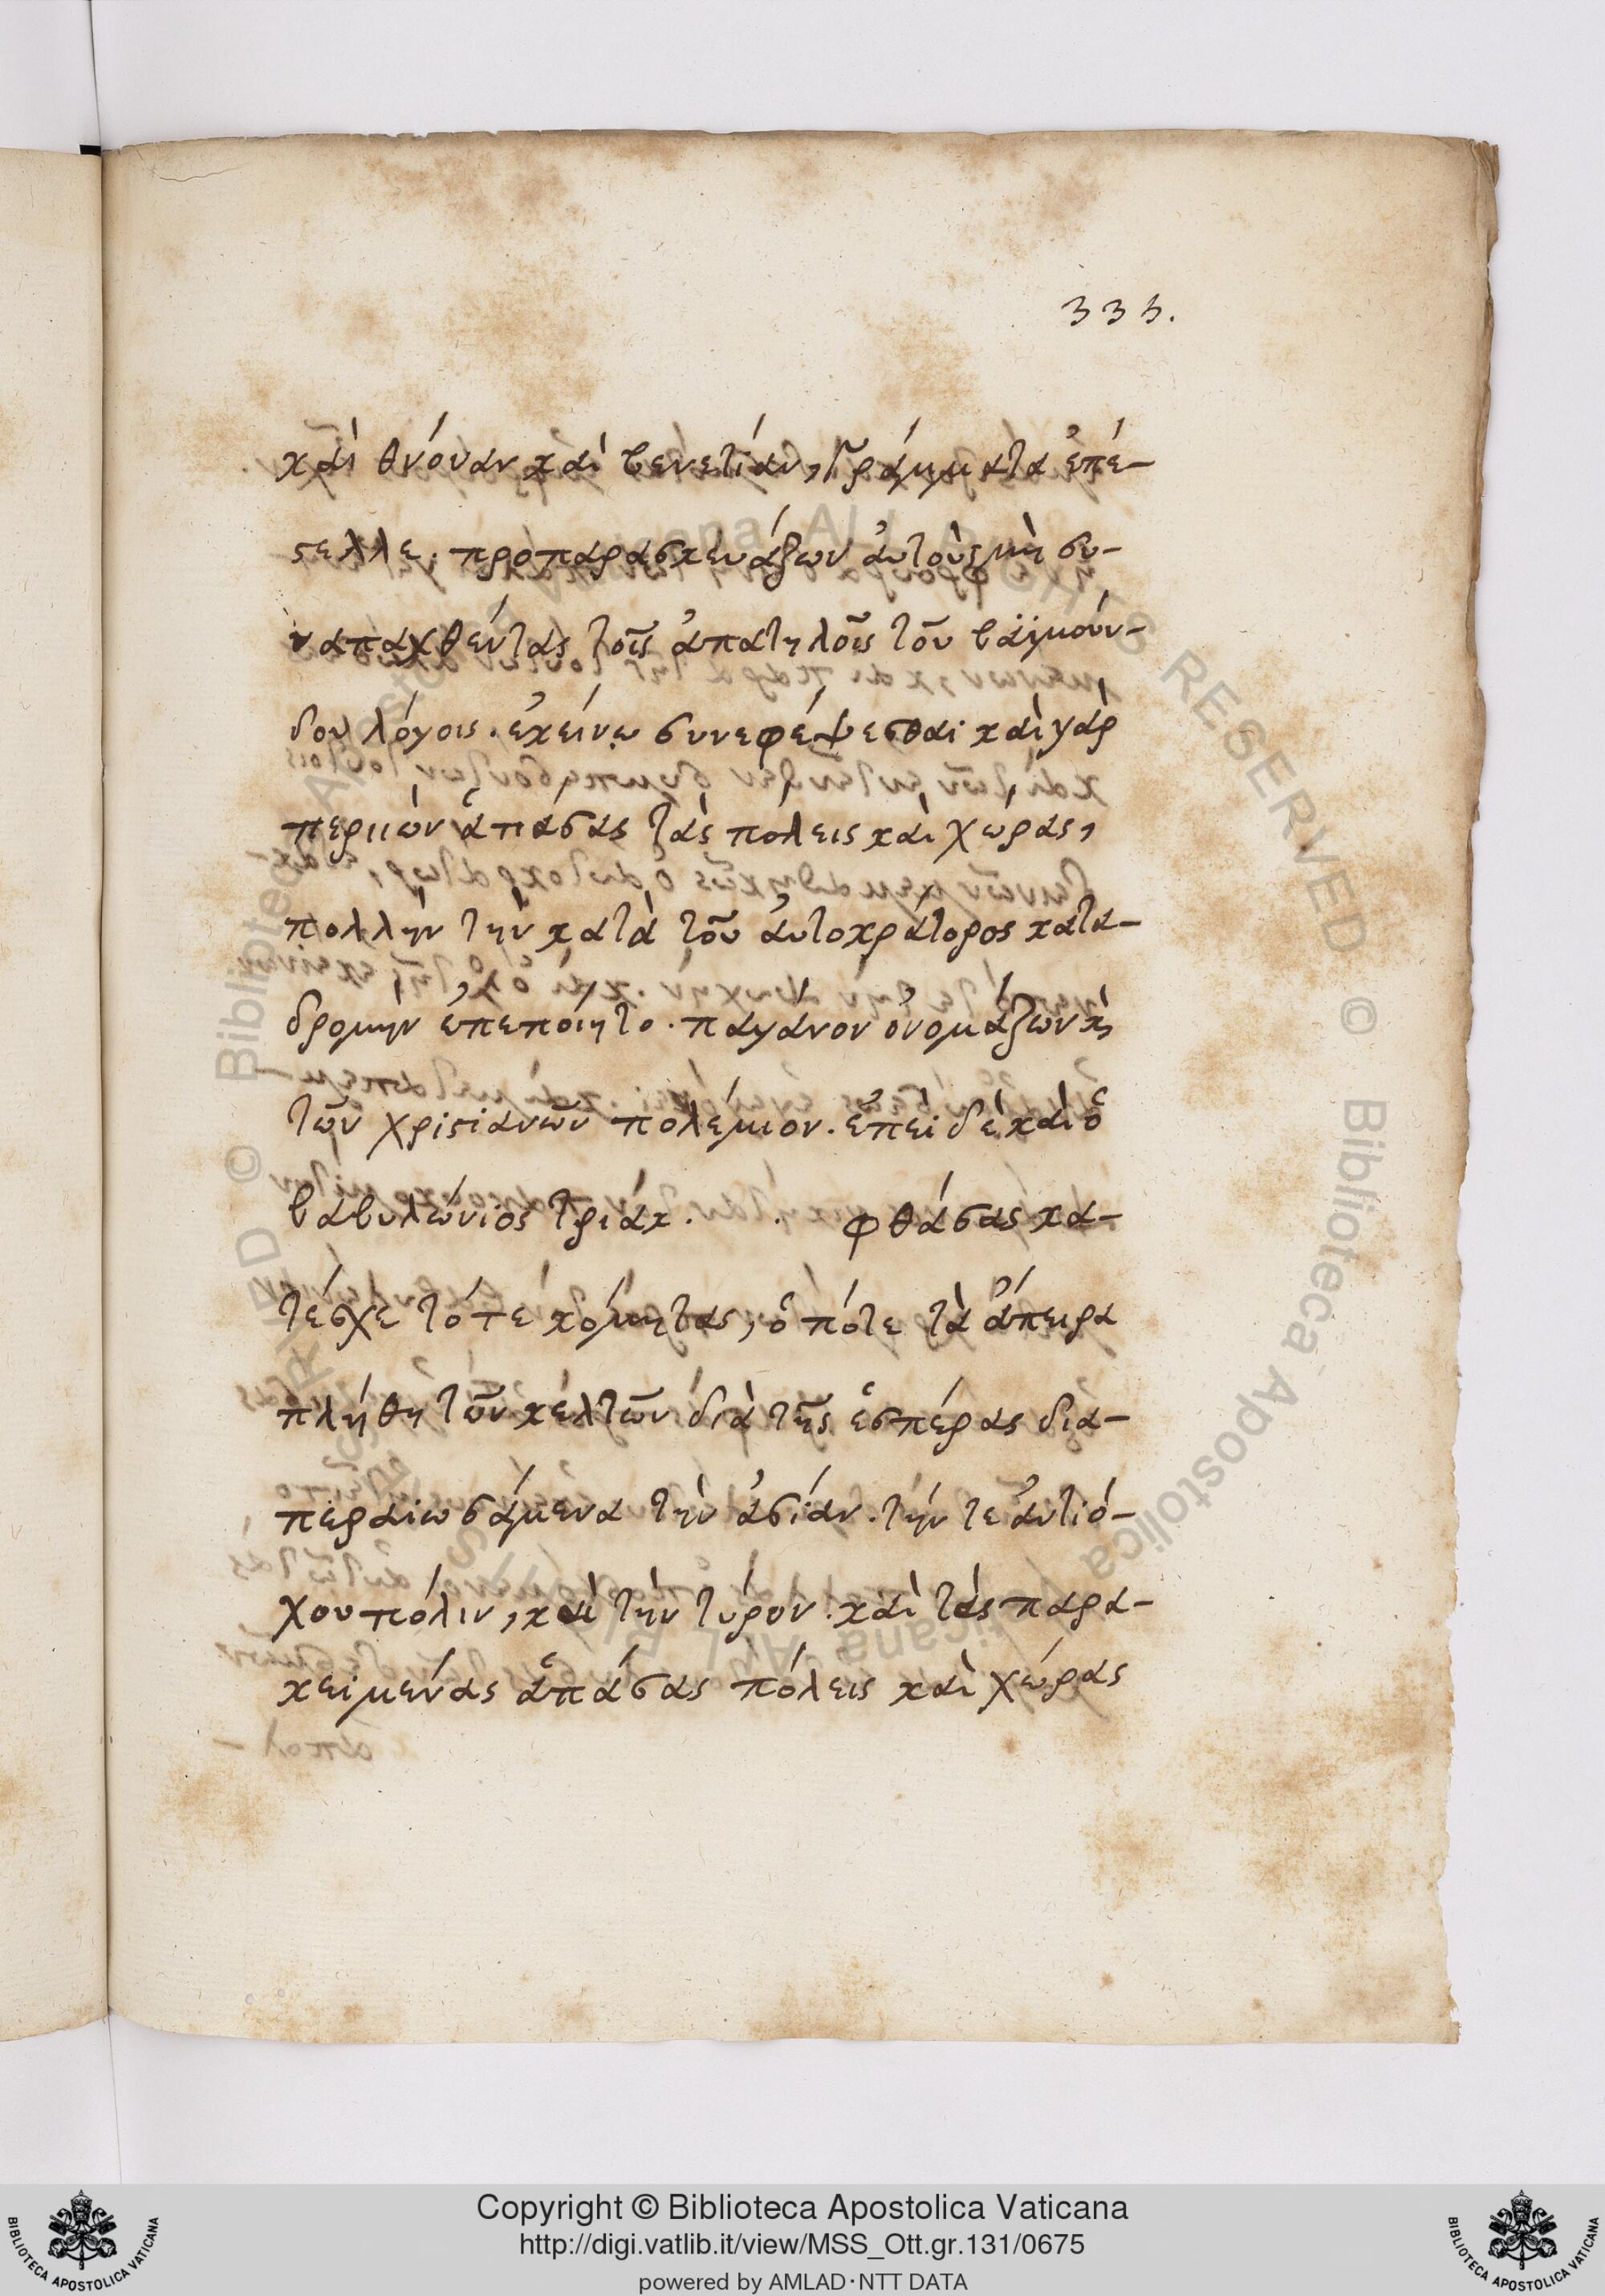 335.
καὶ θνόυαν καὶ βενετίαν, γράμματα ἐπέ-
στελλε. προπαρασκευάζων ἀυτοὺς μὴ συ-
ναπαχθέντας τοῖς ἀπατηλοῖς τοῦ βαϊμούν-
δου λόγοις. ἐκείνω συνεφέψεσθαι καὶ γὰρ
περιιὼν ἁπάσας τὰς πολεις καὶ χωρας,
πολλὴν τὴν κατὰ τοῦ ἀυτοκράτορος κατα-
δρομὴν ἐπεποίητο. παγάνον ὀνομάζων κ̀
τῶν χριστιανῶν πολέμιον. ἐπεὶ δὲ καὶ ὁ
βαβυλώνιος τριάκ. . φθάσας κα-
τέσχε τότε κόμητας, ὁπότε τὰ ἄπειρα
πλήθη τῶν κελτῶν διὰ τῆς ἑσπέρας δια-
περαιωσάμενα τὴν ἀσίαν. τήν τε ἀντιό-
χου πόλιν, καὶ τὴν τύρον. καὶ τὰς παρα-
κειμένας ἁπάσας πόλεις καὶ χώρας
Copyright © Biblioteca Apostolica Vaticana
http://digi.vatlib.it/view/MSS_Ott.gr.131/0675
powered by AMLAD·NTT DATA
BIBLIOTECA APOSTOLICA VATICANA
BIBLIOTECA APOSTOLICA VATICANA